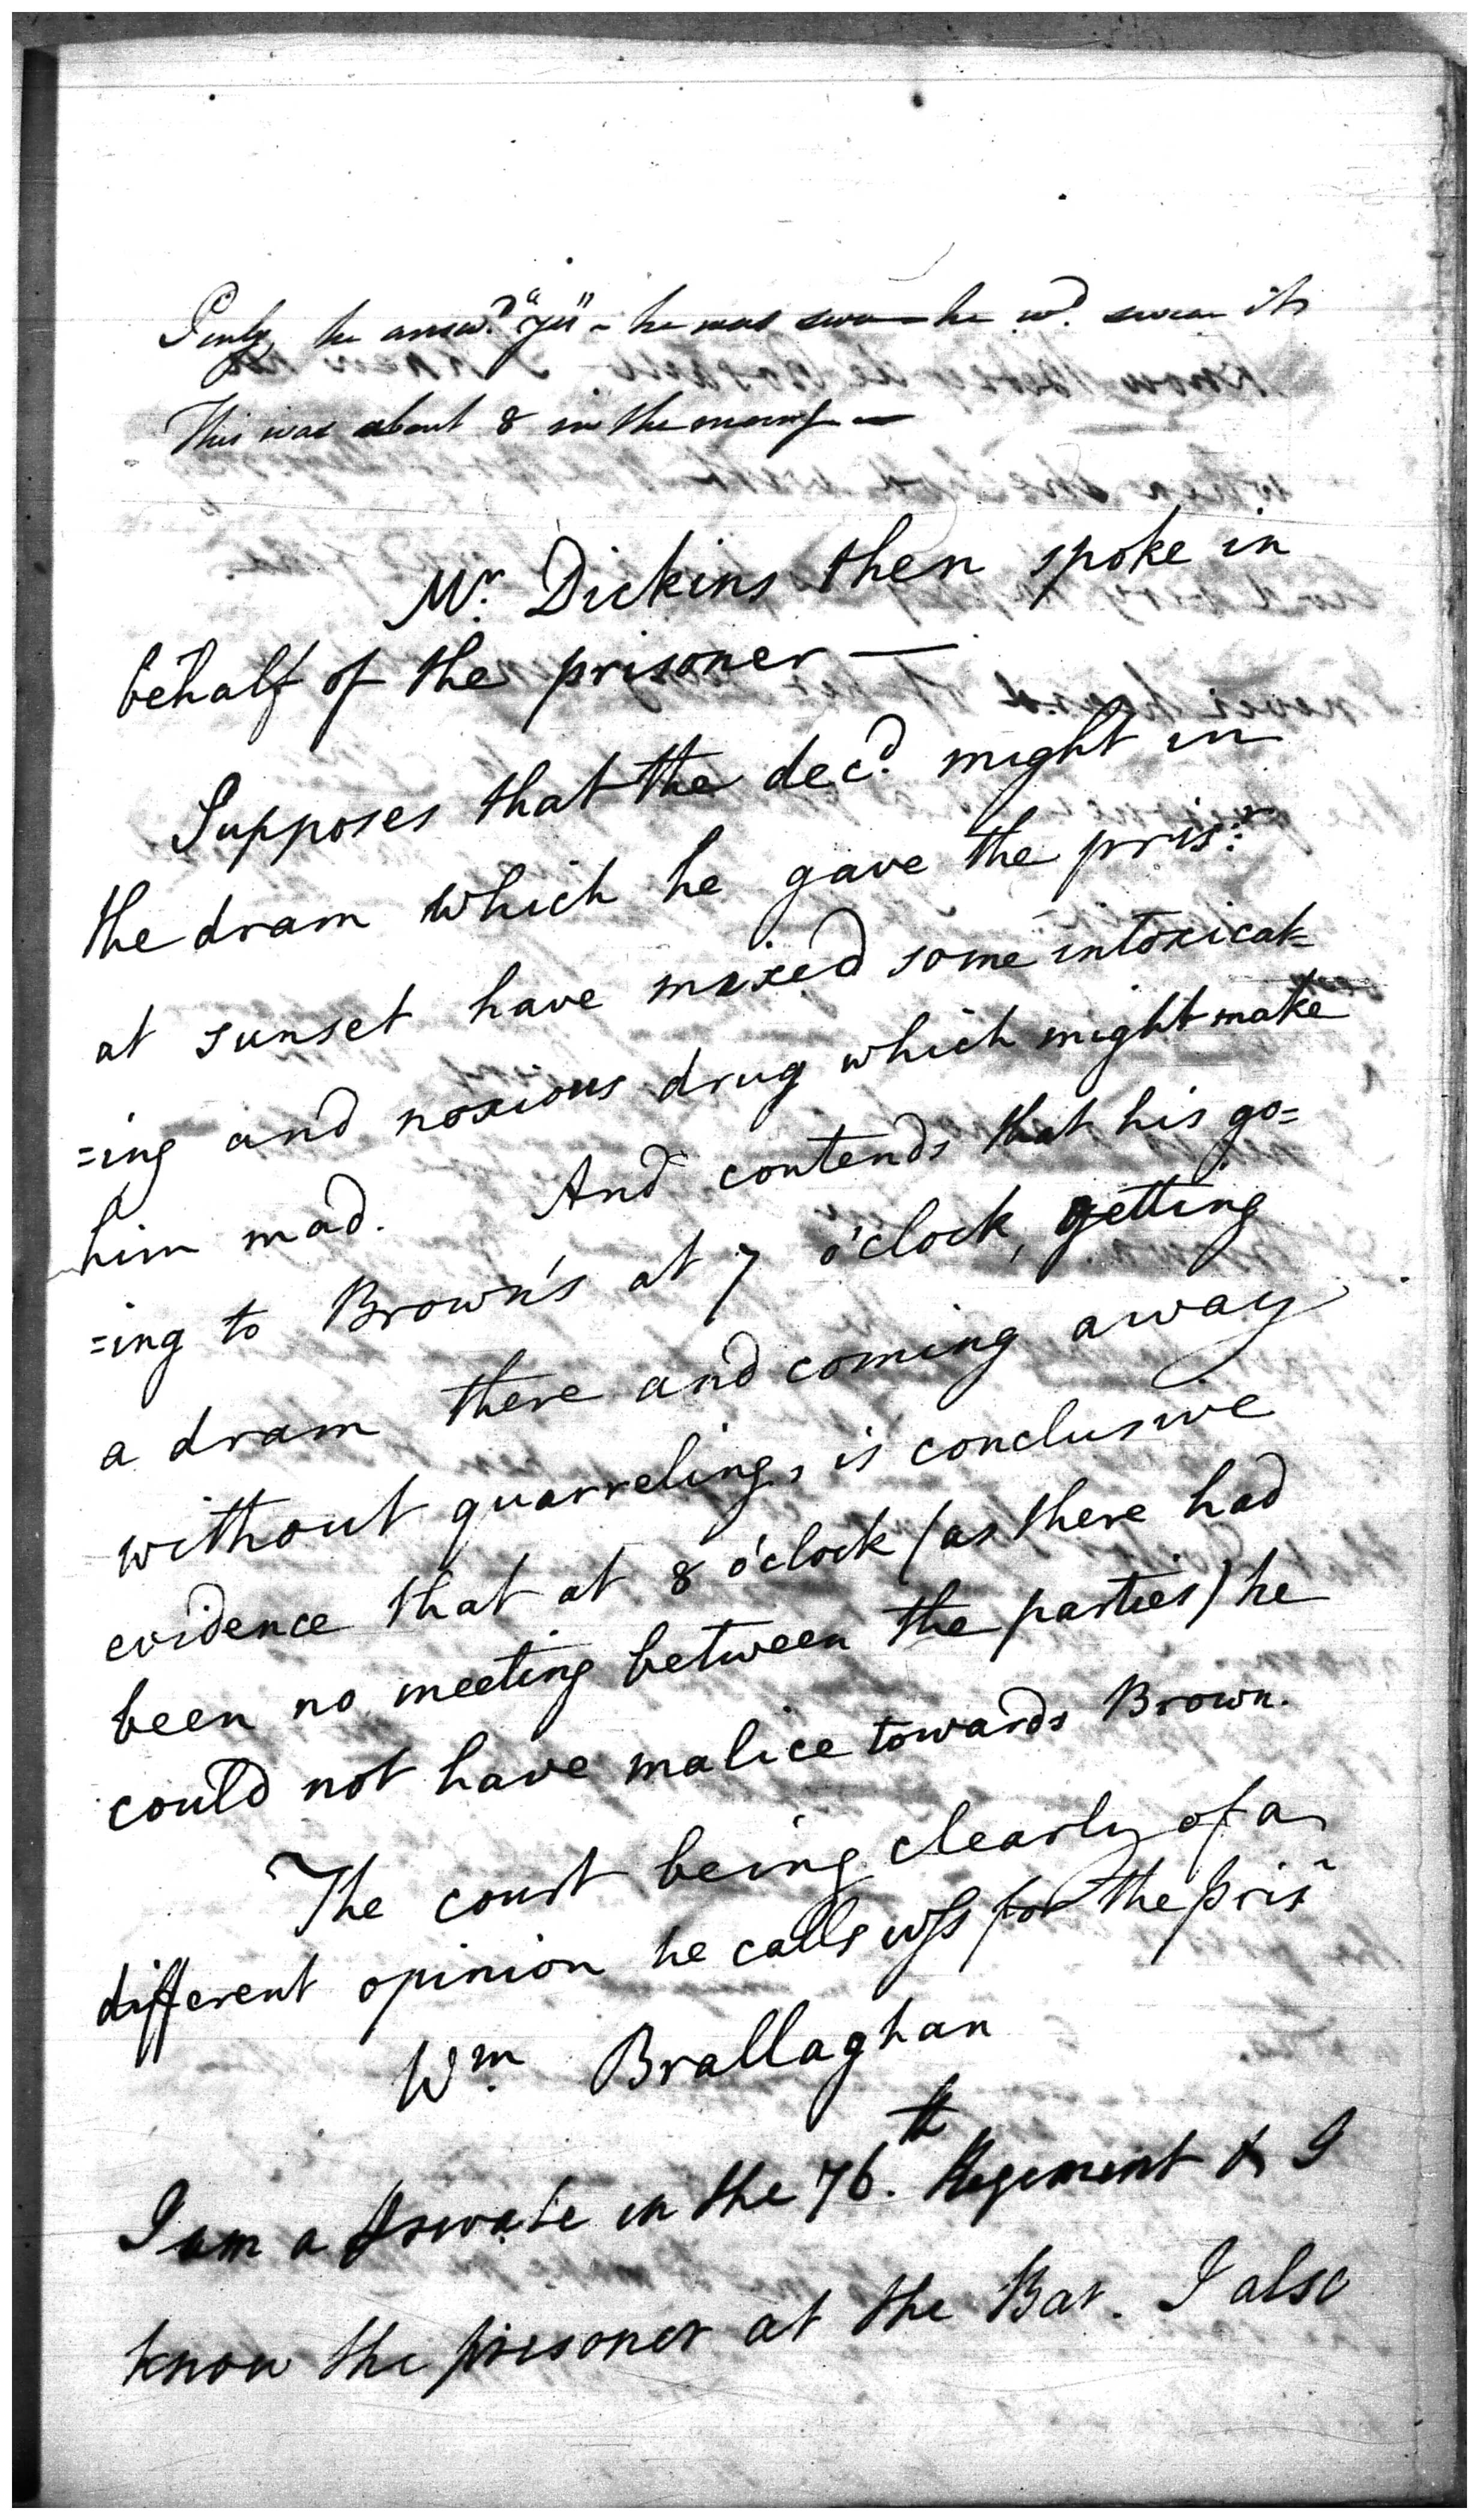 he answ.d "yes" - he was sure he wd. swear it
This was about 8 in the morng —
Mr. Dickins then spoke in
behalf of the prisoner —
Supposes that the decd. might in
the dram which he gave the prisr.
at sunset have mixed some intoxicat=
=ing and noxious drug which might make
him mad. And contends that his go=
=ing to Brown's at 7 o'clock, getting
a dram there and coming away
without quarreling, is conclusive
evidence that at 8 o'clock (as there had
been no meeting between the parties) he
could not have malice towards Brown.
The court being clearly of a
different opinion he calls wss for the prisr
Wm. Brallaghan
I am a private in the 76.th Regiment & I
know the prisoner at the Bar. I also